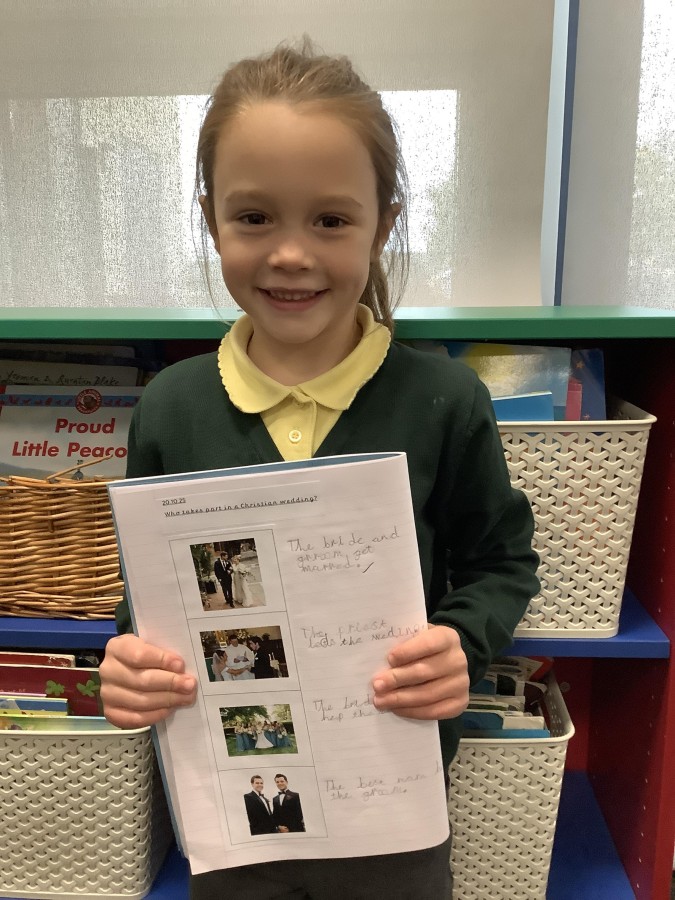 Proud
Little Peaco
20.10.25
Who takes part in a Christian wedding?
The bride and
groom, get
married.
The priest
the wedding
The
help the
The best man
the groom.